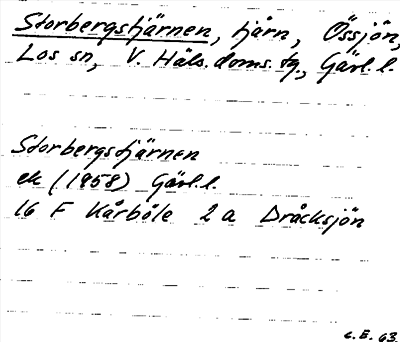 Storbergstjärnen, tjärn, Össjön,
Los sn, V. Häls. doms. tg., Gävl. l.
Storbergstjärnen
ek (1958) Gävl. l.
16 F Kårböle 2 a Dråcksjön
C. E. 63